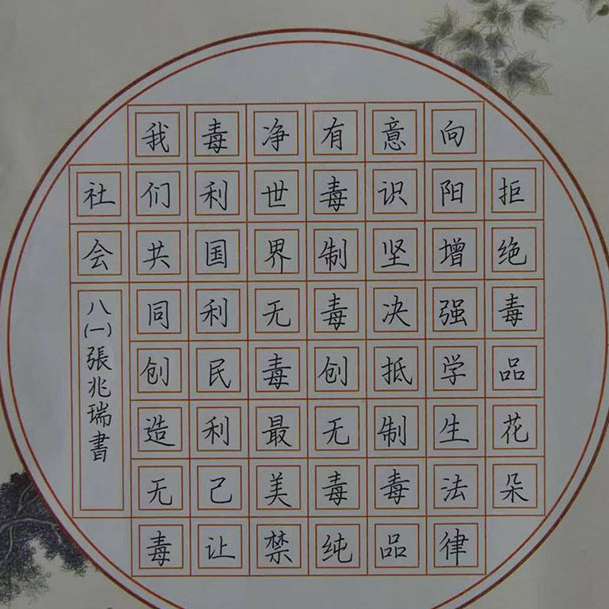 拒绝毒品花朵
向阳增强学生法律
意识坚决抵制毒品
有毒制毒创无毒纯
净世界无毒最美禁
毒利国利民利己让
我们共同创造无毒
社会
八(一)張兆瑞書